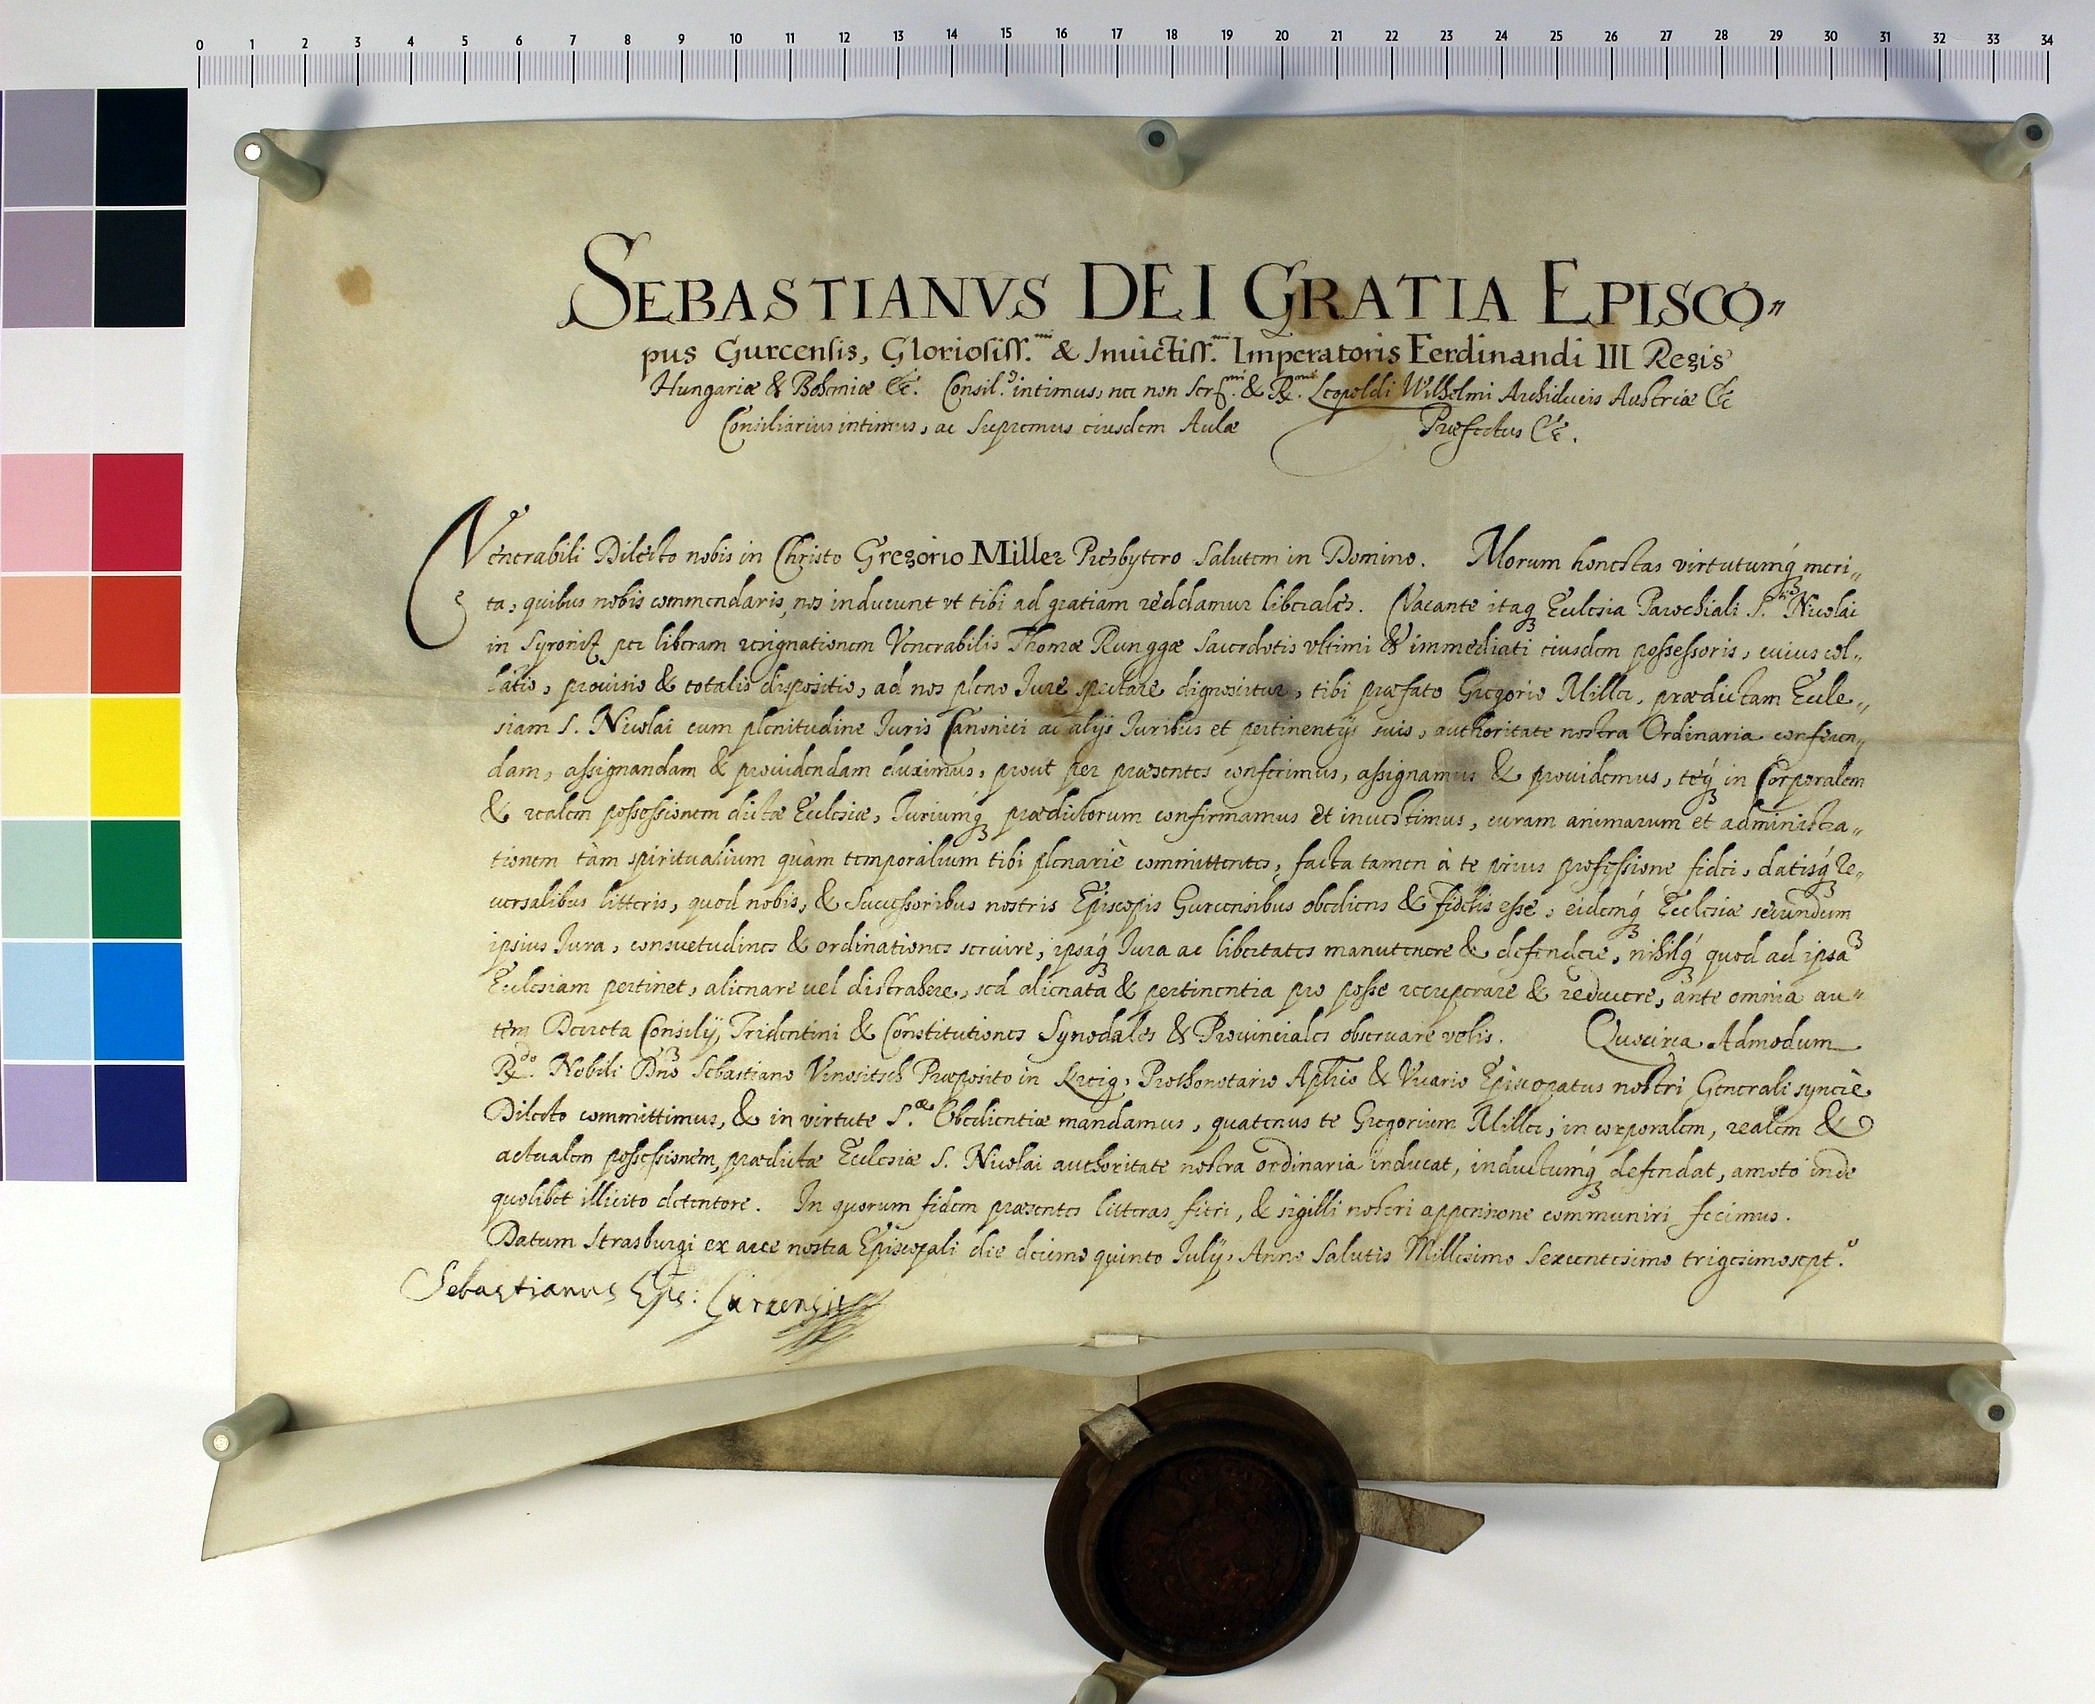 0 1 2 3 4 5 6 7 8 9 10 11 12 13 14 15 16 17 18 19 20 21 22 23 24 25 26 27 28 29 30 31 32 33 34
SEBASTIANVS DEI GRATIA EPISCO„
pus Gurcensis, Gloriosiss.mi & Inuictiss.mi Imperatoris Ferdinandi III Regis
Hungariæ & Bohemiæ &c. Consil.s intimus, nec non Ser.mi & R.mi Leopoldi Wilhelmi Archiducis Austriæ &c
Consiliarius intimus, ac Supremus eiusdem Aulæ Præfectus &c.
Venerabili Dilecto nobis in Christo Gregorio Miller Presbytero Salutem in Domino. Morum honestas virtutumq́ meri„
ta, quibus nobis commendaris, nos inducunt vt tibi ad gratiam reddamur liberales. Vacante itaq Ecclesia Parochiali S. Nicolai
in per liberam resignationem Venerabilis Thomæ Runggæ Sacerdotis vltimi & immediati eiusdem possessoris, cuius col„
latio, prouisio & totalis dispositio, ad nos pleno Jure spectare dignoscitur, tibi præfato Gregorio Miller, prædictam Eccle„
siam S. Nicolai cum plenitudine Iuris Canonici ac alijs Iuribus et pertinentijs suis, authoritate nostra Ordinaria conferen„
dam, assignandam & prouidendam duximus, prout per præsentes conferimus, assignamus & prouidemus, teq́ in Corporalem
& realem possessionem dictæ Ecclesiæ, Juriumq́ prædictorum confirmamus et inuestimus, curam animarum et administra„
tionem tàm spiritualium quàm temporalium tibi plenariè committentes, facta tamen à te prius professione fidei, datisq́ Re„
uersalibus litteris, quod nobis, & Successoribus nostris Episcopis Gurcensibus obediens & fidelis esse, eidemq́ Ecclesiæ secundum
ipsius Iura, consuetudines & ordinationes seruire, ipsaq́ Iura ac libertates manutenere & defendere, nihilq́ quod ad ipsaʒ
Ecclesiam pertinet, alienare uel distrahere, sed alienata & pertinentia pro posse recuperare & reducere, ante omnia au„
tem Decreta Consilij Tridentini & Constitutiones Synodales & Prouinciales obseruare velis. Quocirca Admodum
R.do Nobili Dno Sebastiano Præposito in Kreig, Prothonotario Aplico & Vicario Episcopatus nostri Generali syncerè
Dilecto committimus, & in virtute S.æ Obedientiæ mandamus, quatenus te Gregorium Miller, in corporalem, realem &
actualem possessionem, prædictæ Ecclesiæ S. Nicolai authoritate nostra ordinaria inducat, inductumq́ defendat, amoto inde
quolibet illicito detentore. In quorum fidem præsentes litteras fieri, & sigilli nostri appensione communiri fecimus.
Datum Strasburgi ex arce nostra Episcopali die decimo quinto Julij, Anno Salutis Millesimo Sexcentesimo trigesimosept.o
Sebastianus Eps: Gurcensis